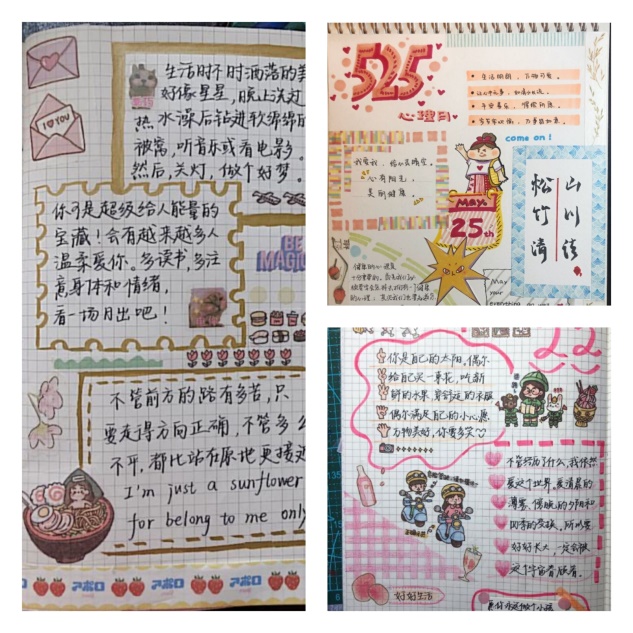 I ♡ YOU
生活时不时洒落的美
好像星星，晚上洗过
热水澡后钻进软绵绵的
被窝，听音乐或看电影。
然后，关灯，做个好梦。
你可是超级给人能量的
宝藏！会有越来越多人
温柔爱你。多读书，多注
意身体和情绪，
看一场日出吧！
BE
MAGIC
不管前方的路有多苦，只
要走得方向正确，不管多么
不平，都比站在原地更接近
I'm just a sunflower
for belong to me only
アポロ アポロ アポロ
525
心理日
生活明朗，万物可爱。
平安喜乐，
万事
come on！
我爱我，给心灵晴空。
心有阳光，
美丽健康。
MAY.
25th
山川
松竹清
May
your
22
你是自己的太阳，偶尔
给自己买一束花，听新
鲜的水果，穿舒适的衣服
偶尔满足自己的小心愿
万物美好，你要多笑
不管经历了什么，我依然
爱这个世界，爱清晨的
薄雾、傍晚的夕阳和
四季的变换，所以要
好好长大，一定会被
这个宇宙
好好生活